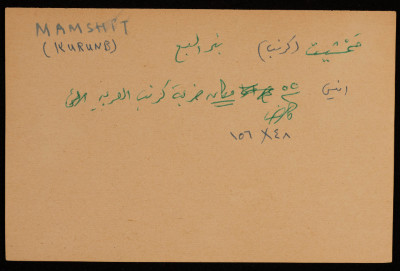 MAMSHIT
(KURUNB)
ممشيت (كرنب) بئر السبع
مكان خربة كرنب العربية
١٥٦ X ٤٨